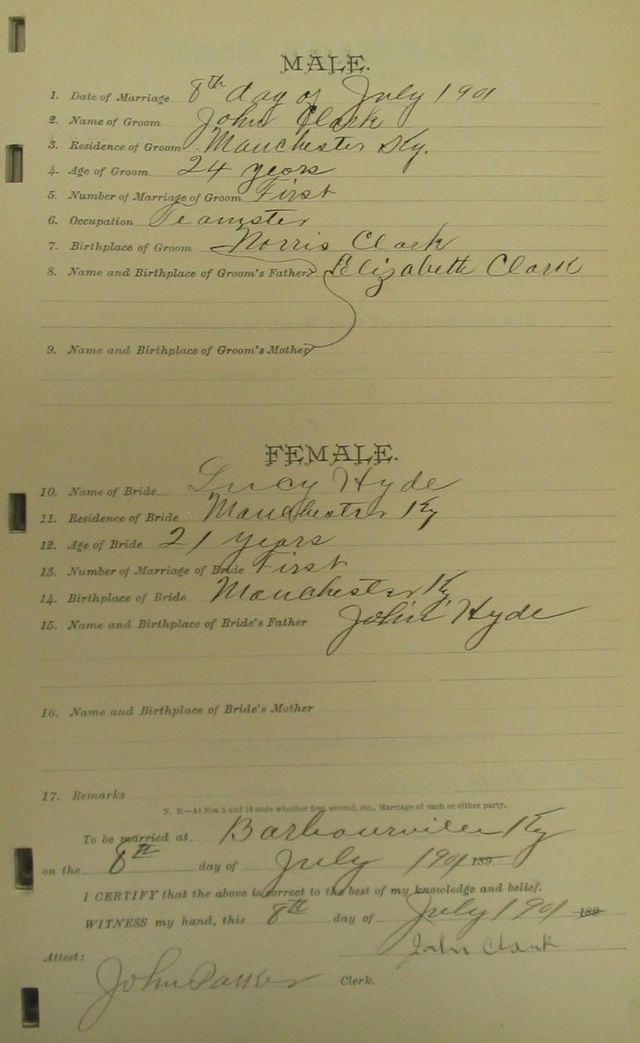 MALE.
1. Date of Marriage 8th day of July 1901
2. Name of Groom John Clark
3. Residence of Groom Manchester Ky.
4. Age of Groom 24 years
5. Number of Marriage of Groom First
6. Occupation Teamster
7. Birthplace of Groom Norris Clark
8. Name and Birthplace of Groom's Father Elizabeth Clark
9. Name and Birthplace of Groom's Mother
FEMALE.
10. Name of Bride Lucy Hyde
11. Residence of Bride Manchester Ky
12. Age of Bride 21 years
13. Number of Marriage of Bride First
14. Birthplace of Bride Manchester Ky
15. Name and Birthplace of Bride's Father John Hyde
16. Name and Birthplace of Bride's Mother
17. Remarks
N. B.—At Nos. 5 and 13 state whether first, second, etc., Marriage of each or either party.
To be married at Barbourville Ky
on the 8th day of July 1901 189
I CERTIFY that the above is correct to the best of my knowledge and belief.
WITNESS my hand, this 8th day of July 1901 189
John Clark
Attest:
John Parker Clerk.